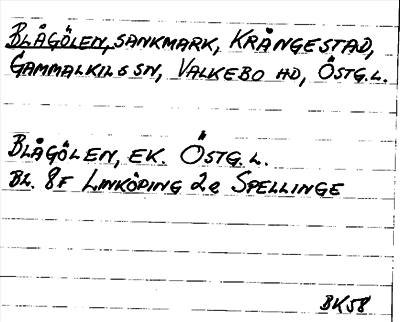 BLÅGÖLEN, SANKMARK, KRÅNGESTAD,
GAMMALKILS SN, VALKEBO HD, ÖSTG.L.
BLÅGÖLEN, EK. ÖSTG.L.
BL. 8F LINKÖPING 2e SPELLINGE
BK58